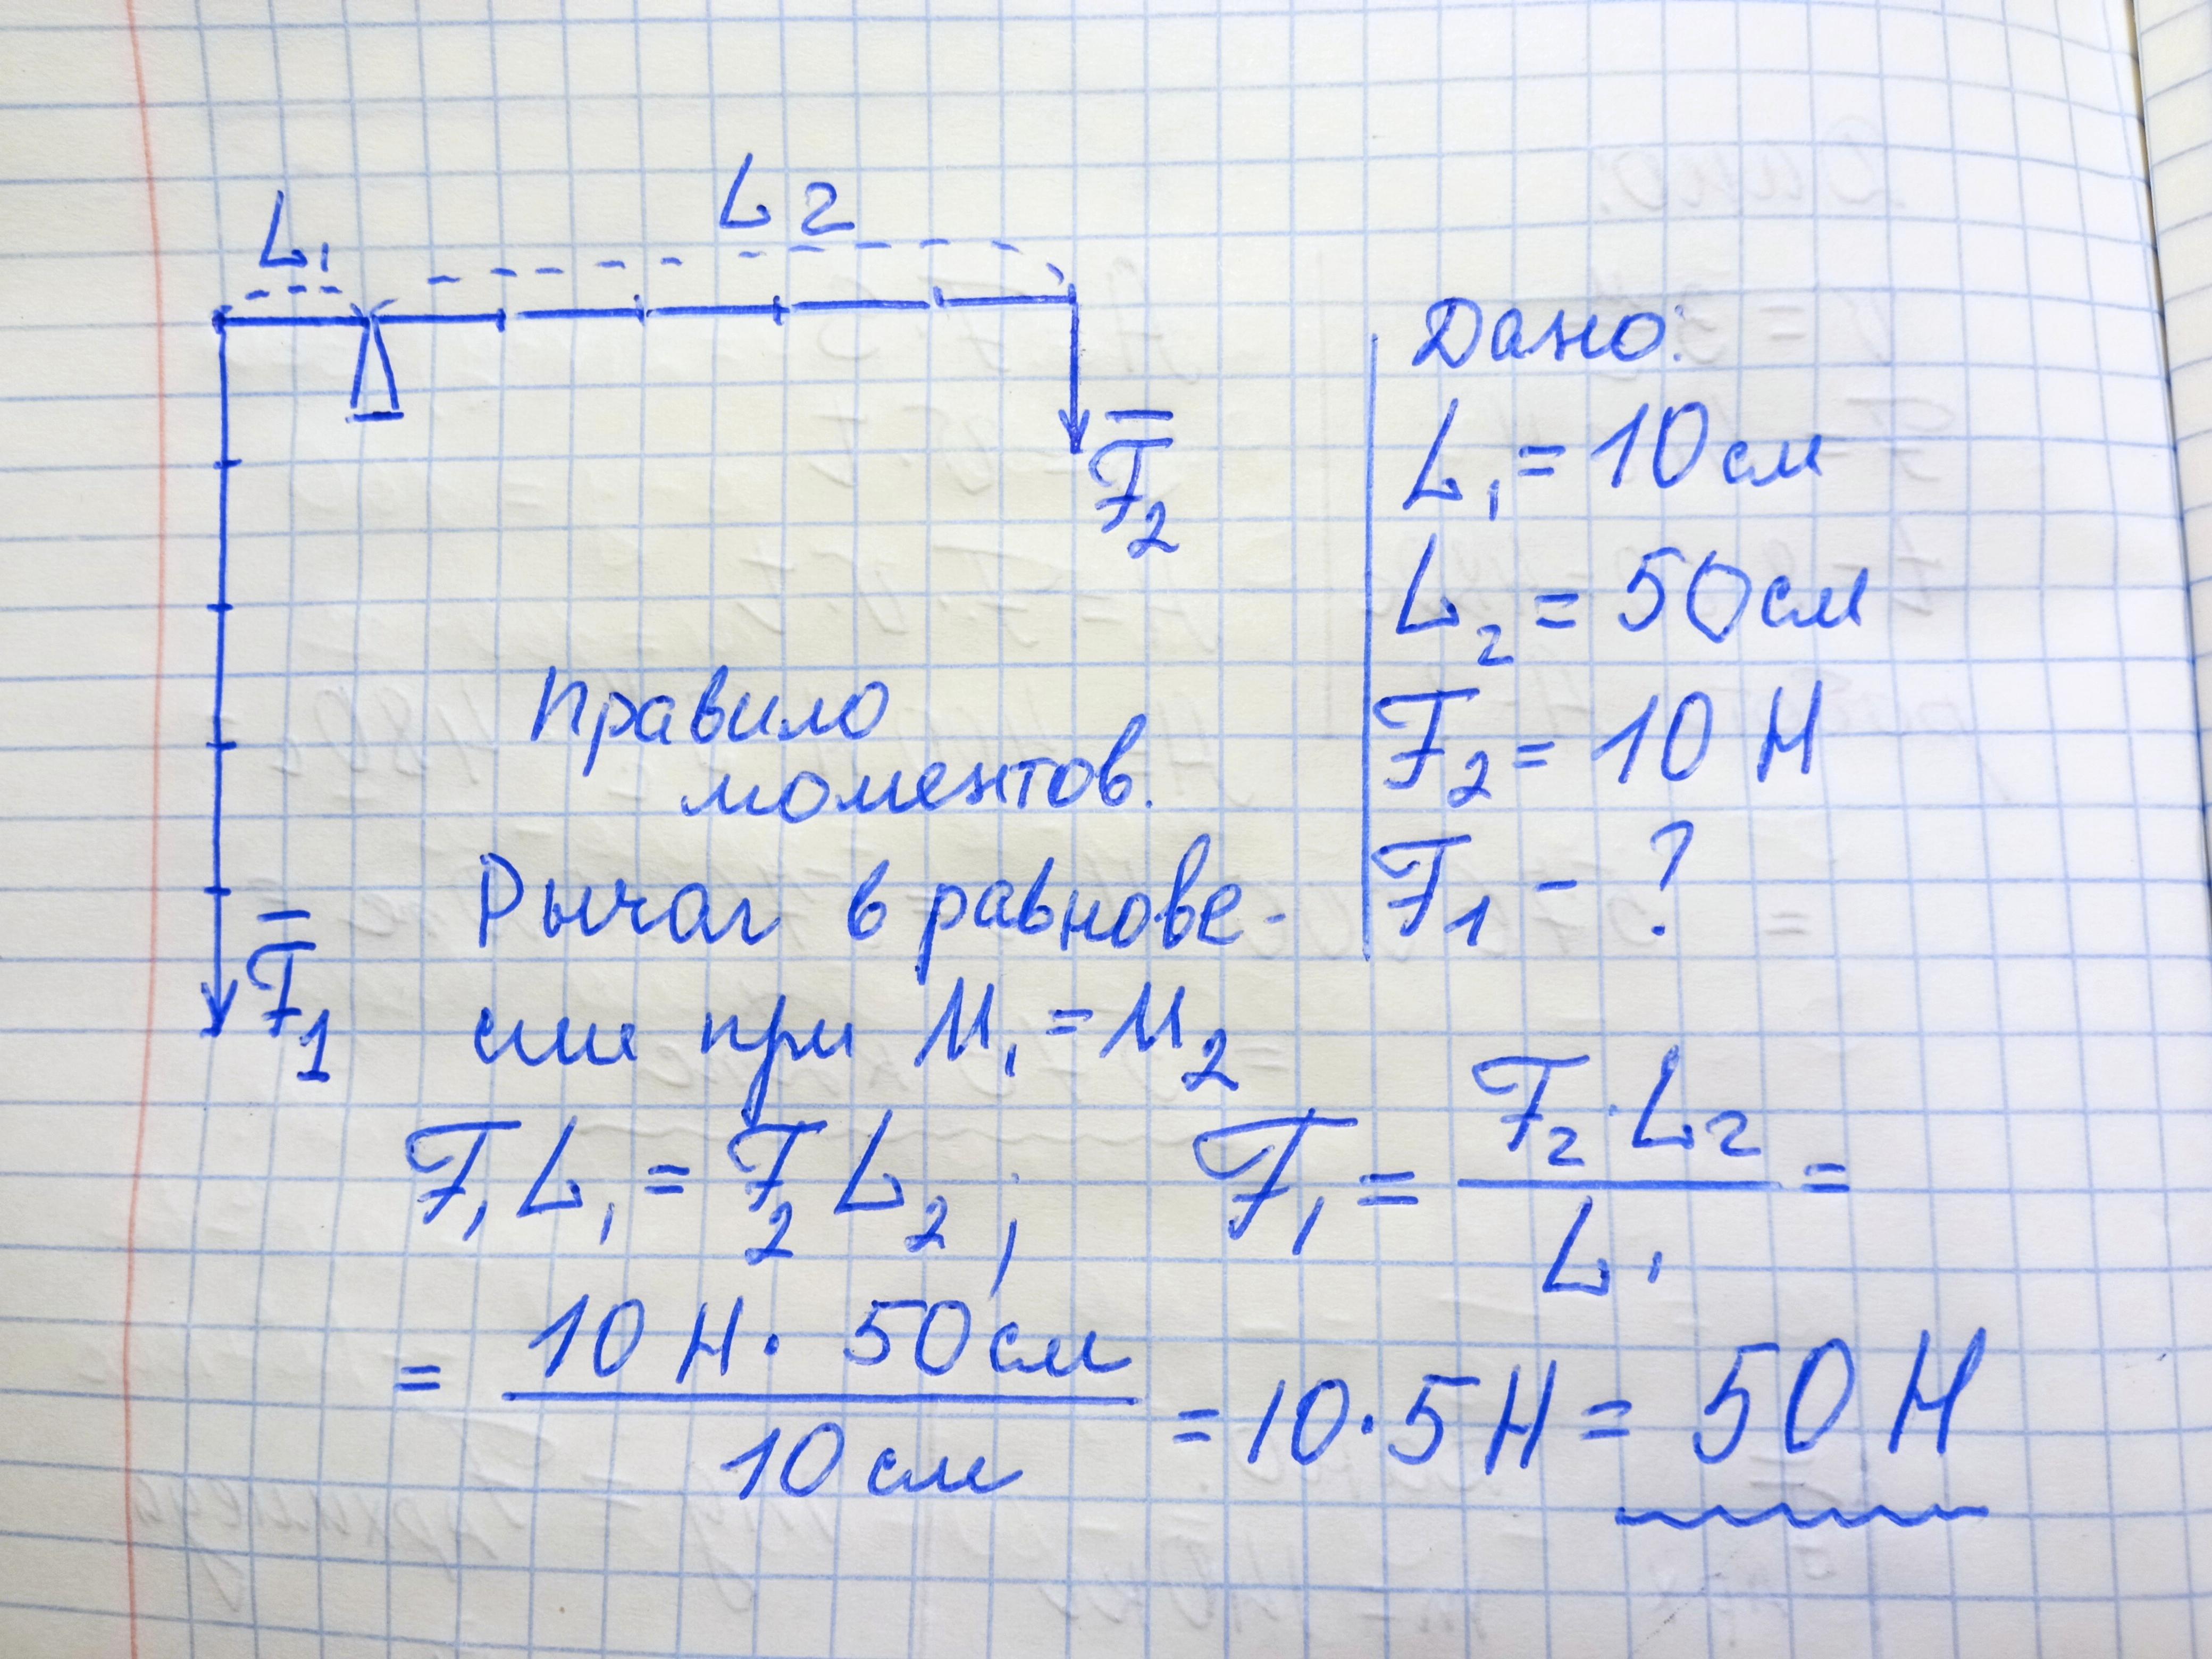 L₁
L₂
F̅₂
F̅₁
Дано:
L₁ = 10 см
L₂ = 50 см
F₂ = 10 Н
F₁ - ?
Правило
моментов.
Рычаг в равнове-
сии при М₁ = М₂
F₁ L₁ = F₂ L₂ ; F₁ = F₂ · L₂ / L₁ =
= 10 Н · 50 см / 10 см = 10 · 5 Н = 50 Н